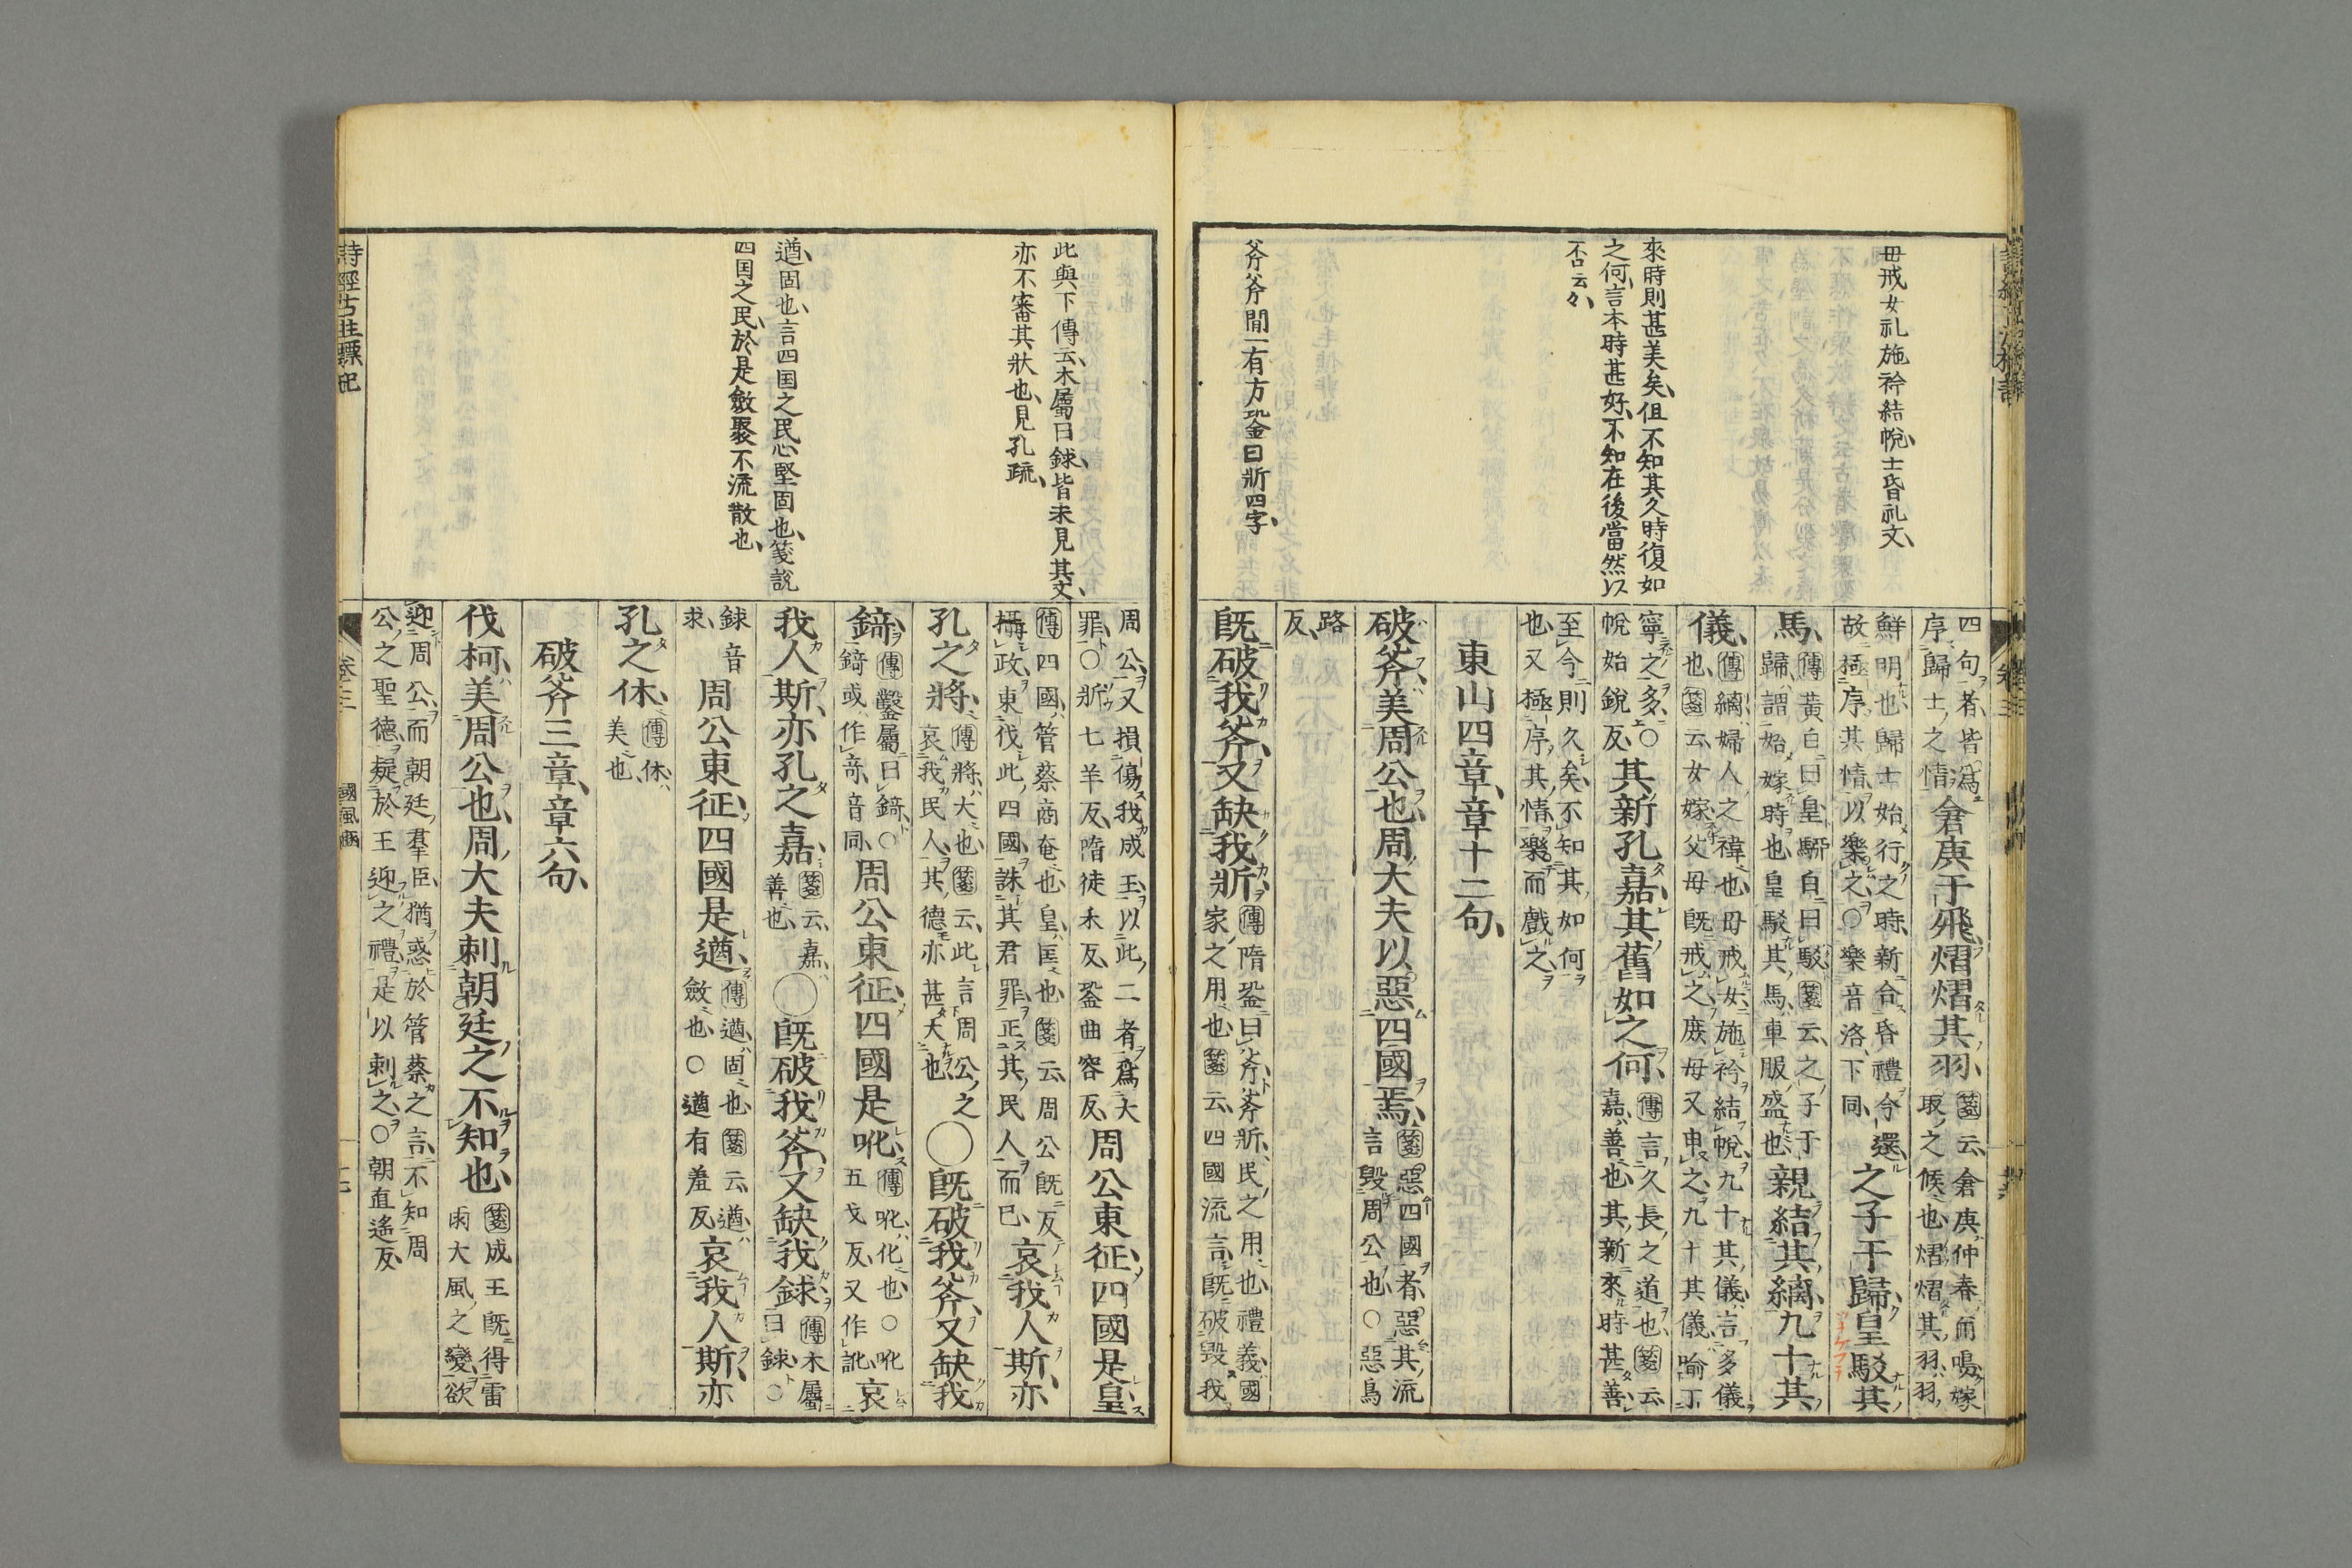 毌戒女礼施衿結帨、士昏礼文、
來時則甚美矣、但不知其久時復如
之何、言本時甚好、不知在後當然以
否云々、
斧斧間一有方巩金曰斨四字、
四句者、皆爲序歸士之情
倉庚于飛、熠熠其羽、
箋云、倉庚仲春而鳴、嫁取之候也、熠熠其羽、羽
鮮明也、歸士始行之時、新合昏禮、今還、故極序其情、以樂之、〇樂音洛、下同、
之子于歸、皇駁其
馬、
傳黃白曰皇、騢白曰駁、箋云、之子于歸、謂始嫁時也、皇駁其馬、車服盛也、
親結其縭、九十其
儀、
傳縭、婦人之褘也、母戒女、施衿結帨、九十其儀、言多儀也、箋云、女嫁、父母既戒之、庶母又申之、九十其儀、喻丁
寧之多、〇帨始銳反、
其新孔嘉、其舊如之何、
傳言久長之道也、箋云、嘉、善也、其新來時甚善、
至今則久矣、不知其如何也、又極序其情、樂而戲之、
東山四章、章十二句、
破斧、美周公也、周大夫以惡四國焉、
箋惡四國者、惡其流言毀周公也、〇惡烏
路反、
既破我斧、又缺我斨、
傳隋銎曰斧、斧斨、民之用也、禮義、國家之用也、箋云、四國流言、既破毀我
此與下傳云、木屬曰銶、皆未見其文、
亦不審其狀也、見孔疏、
遒、固也、言四国之民心堅固也、箋説
四国之民、於是斂聚不流散也、
周公、又損傷我成王、以此二者爲大罪、〇斨七羊反、隋徒禾反、銎曲容反、
周公東征、四國是皇、
傳四國、管蔡商奄也、皇、匡也、箋云、周公既反攝政、東伐此四國、誅其君罪、正其民人而已、
哀我人斯、亦
孔之將、
傳將、大也、箋云、此言周公之哀我民人、其德亦甚大也、
〇既破我斧、又缺我
錡、
傳鑿屬曰錡、〇錡或作奇、音同、
周公東征、四國是吪、
傳吪、化也、〇吪五戈反、又作訛、
哀
我人斯、亦孔之嘉、
箋云、嘉、善也、
〇既破我斧、又缺我銶、
傳木屬曰銶、〇
銶音求、
周公東征、四國是遒、
傳遒、固也、箋云、遒、斂也、〇遒有羞反、
哀我人斯、亦
孔之休、
傳休、美也、
破斧三章、章六句、
伐柯、美周公也、周大夫刺朝廷之不知也、
箋成王既得雷雨大風之變、欲
迎周公、而朝廷羣臣、猶惑於管蔡之言、不知周公之聖德、疑於王迎之禮、是以刺之、〇朝直遙反、
詩經古註標記
卷三
國風豳